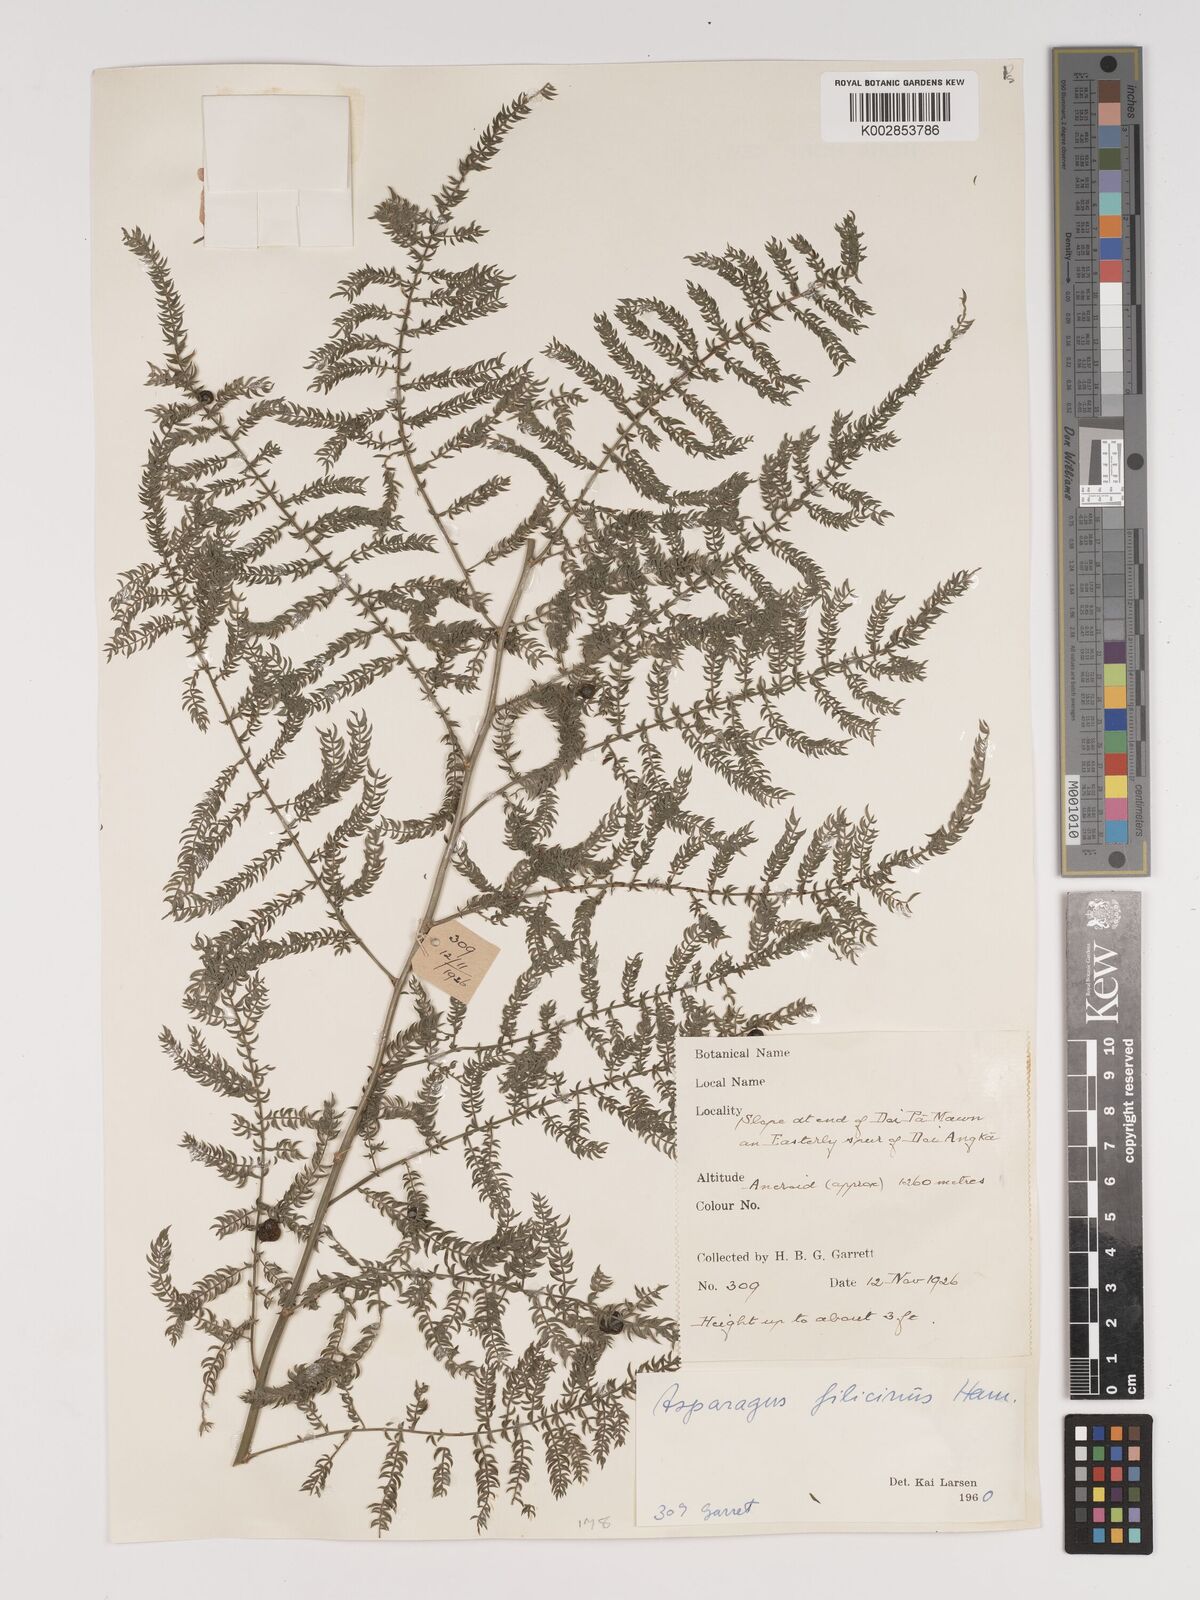 ROYAL BOTANIC GARDENS KEW
K002853786
309
12/11
1926
Botanical Name
Local Name
Locality Slope at end of Doi Pā Mawn
an Easterly spur of Doi Angkā
Altitude Aneroid (approx) 1260 metres
Colour No.
Collected by H. B. G. Garrett
No. 309 Date 12 Nov 1926
Height up to about 3 ft.
Asparagus filicinus Ham.
Det. Kai Larsen
1960
309 Garret
178
inches
centimetres
Density
Don Williams
M001010
Kew
Royal Botanic Gardens
copyright reserved
0 1 2 3 4 5 6 7 8 9 10
cm